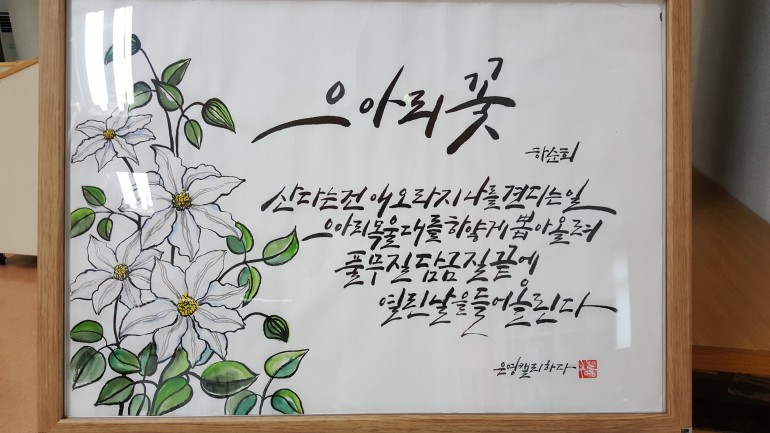 으아리꽃
하순희
산다는건 애오라지 나를 견디는 일
으아리 목울대를 하얗게 뽑아올려
풀무질 담금질 끝에
열린 날을 들어올린다
은영캘리하다